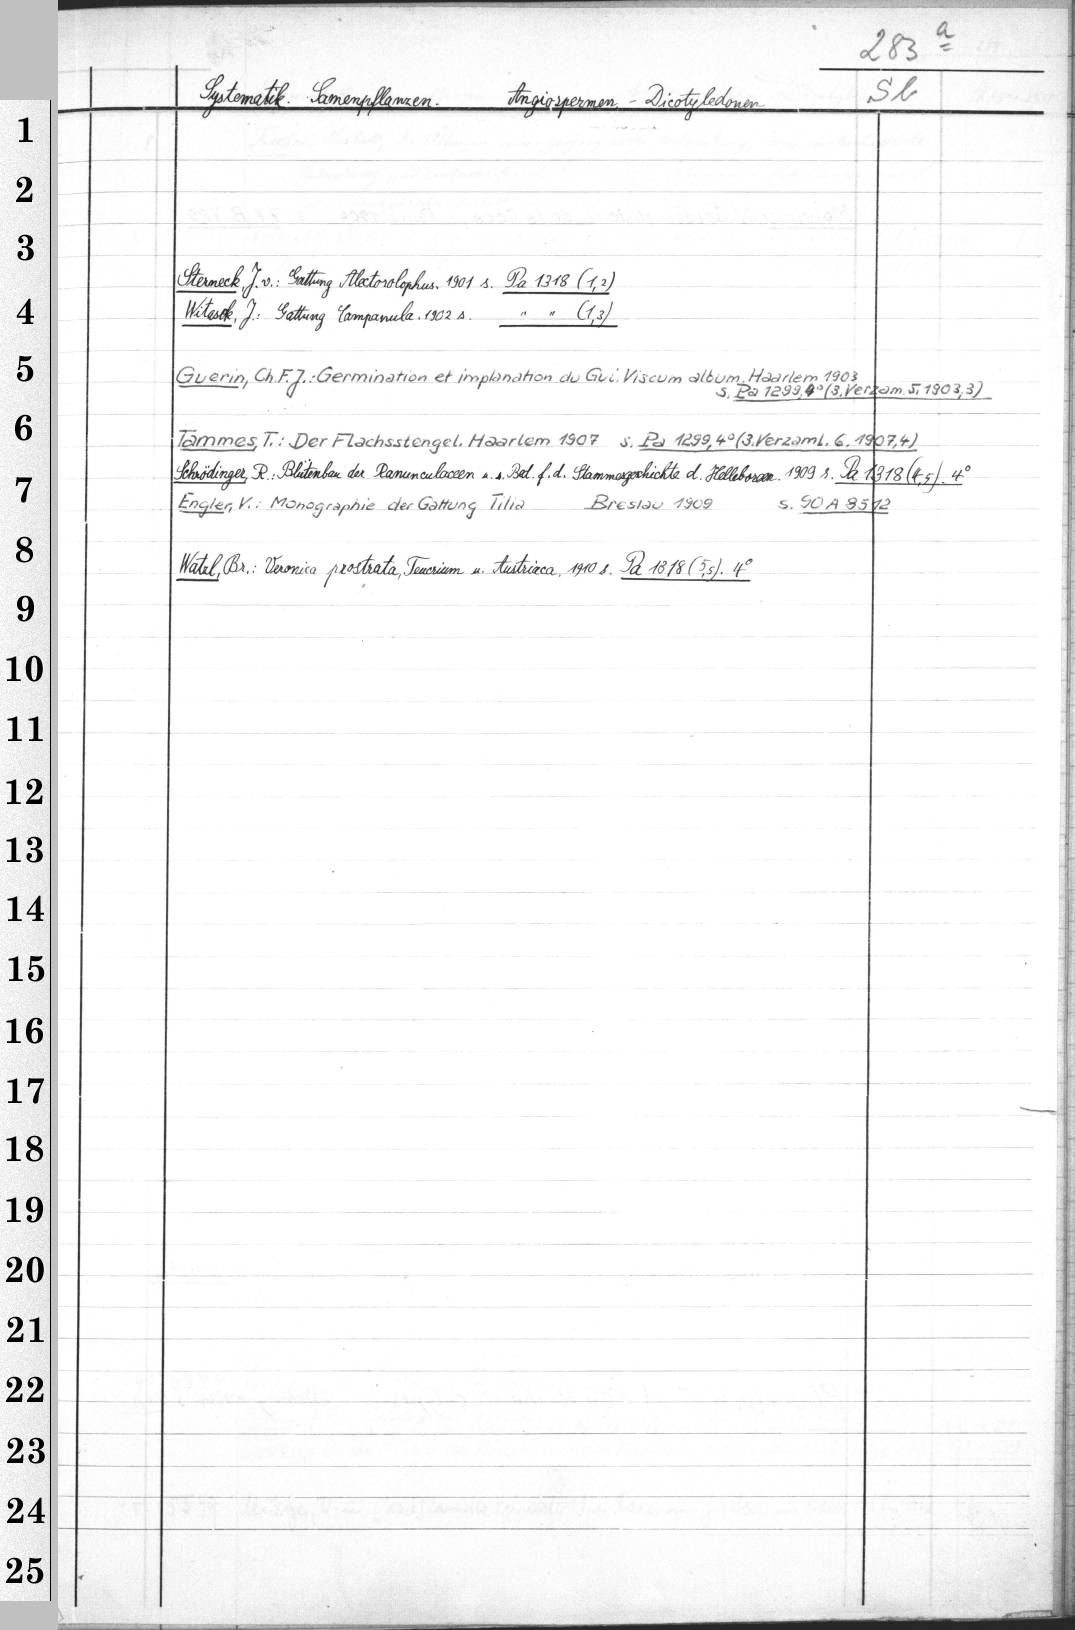 283 a
Systematik. Samenpflanzen. Angiospermen - Dicotyledonen Sb
1
2
3
Sterneck, J. v.: Gattung Alectorolophus. 1901 s. Pa 1318 (1,2)
4
Witasek, J.: Gattung Campanula. 1902 s. " " (1,3)
5
Guerin, Ch. F. J.: Germination et implanation du Gui. Viscum album. Haarlem 1903
s. Pa 1299, 4° (3. Verzam. 5, 1903,3)
6
Tammes, T.: Der Flachsstengel. Haarlem 1907 s. Pa 1299, 4° (3. Verzaml. 6. 1907,4)
Schrödinger, R.: Blütenbau der Ranunculaceen u. s. Bed. f. d. Stammesgeschichte d. Helleboreen. 1909 s. Pa 1318 (4,5). 4°
7
Engler, V.: Monographie der Gattung Tilia Breslau 1909 s. 90 A 8512
8
Watzl, Br.: Veronica prostrata, Teucrium u. Austriaca. 1910 s. Pa 1318 (5,5). 4°
9
10
11
12
13
14
15
16
17
18
19
20
21
22
23
24
25